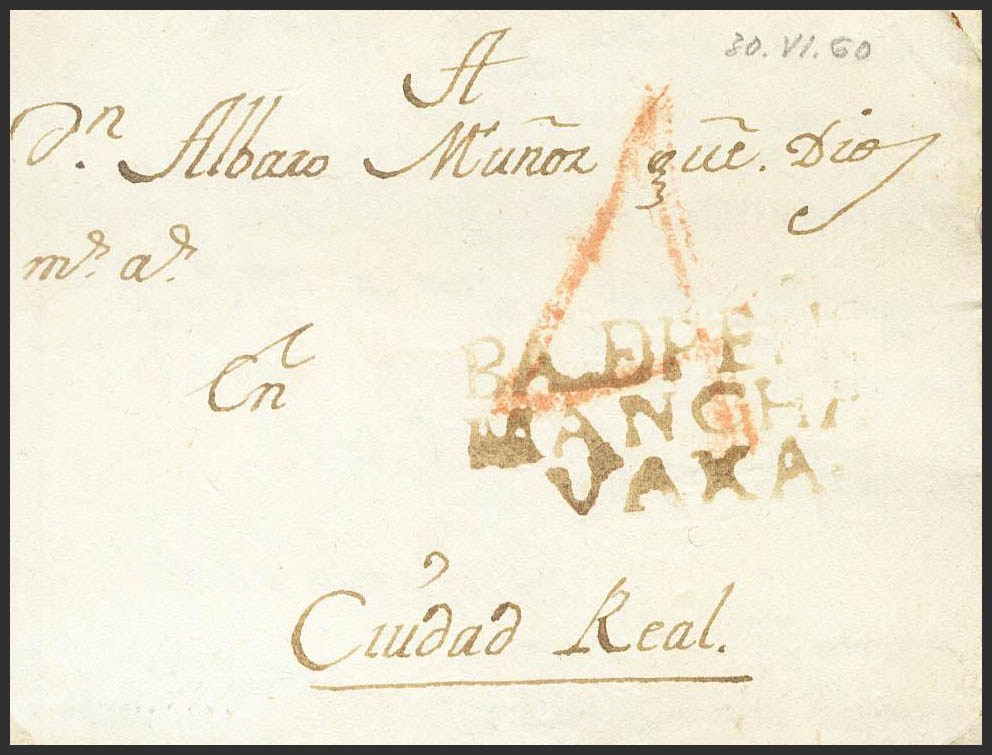 30.VI.60
A
Dn. Albaro Muñoz que. Dios
ms. as.
En
BA.DPEÑ
MANCHA
VAXA
Ciudad Real.